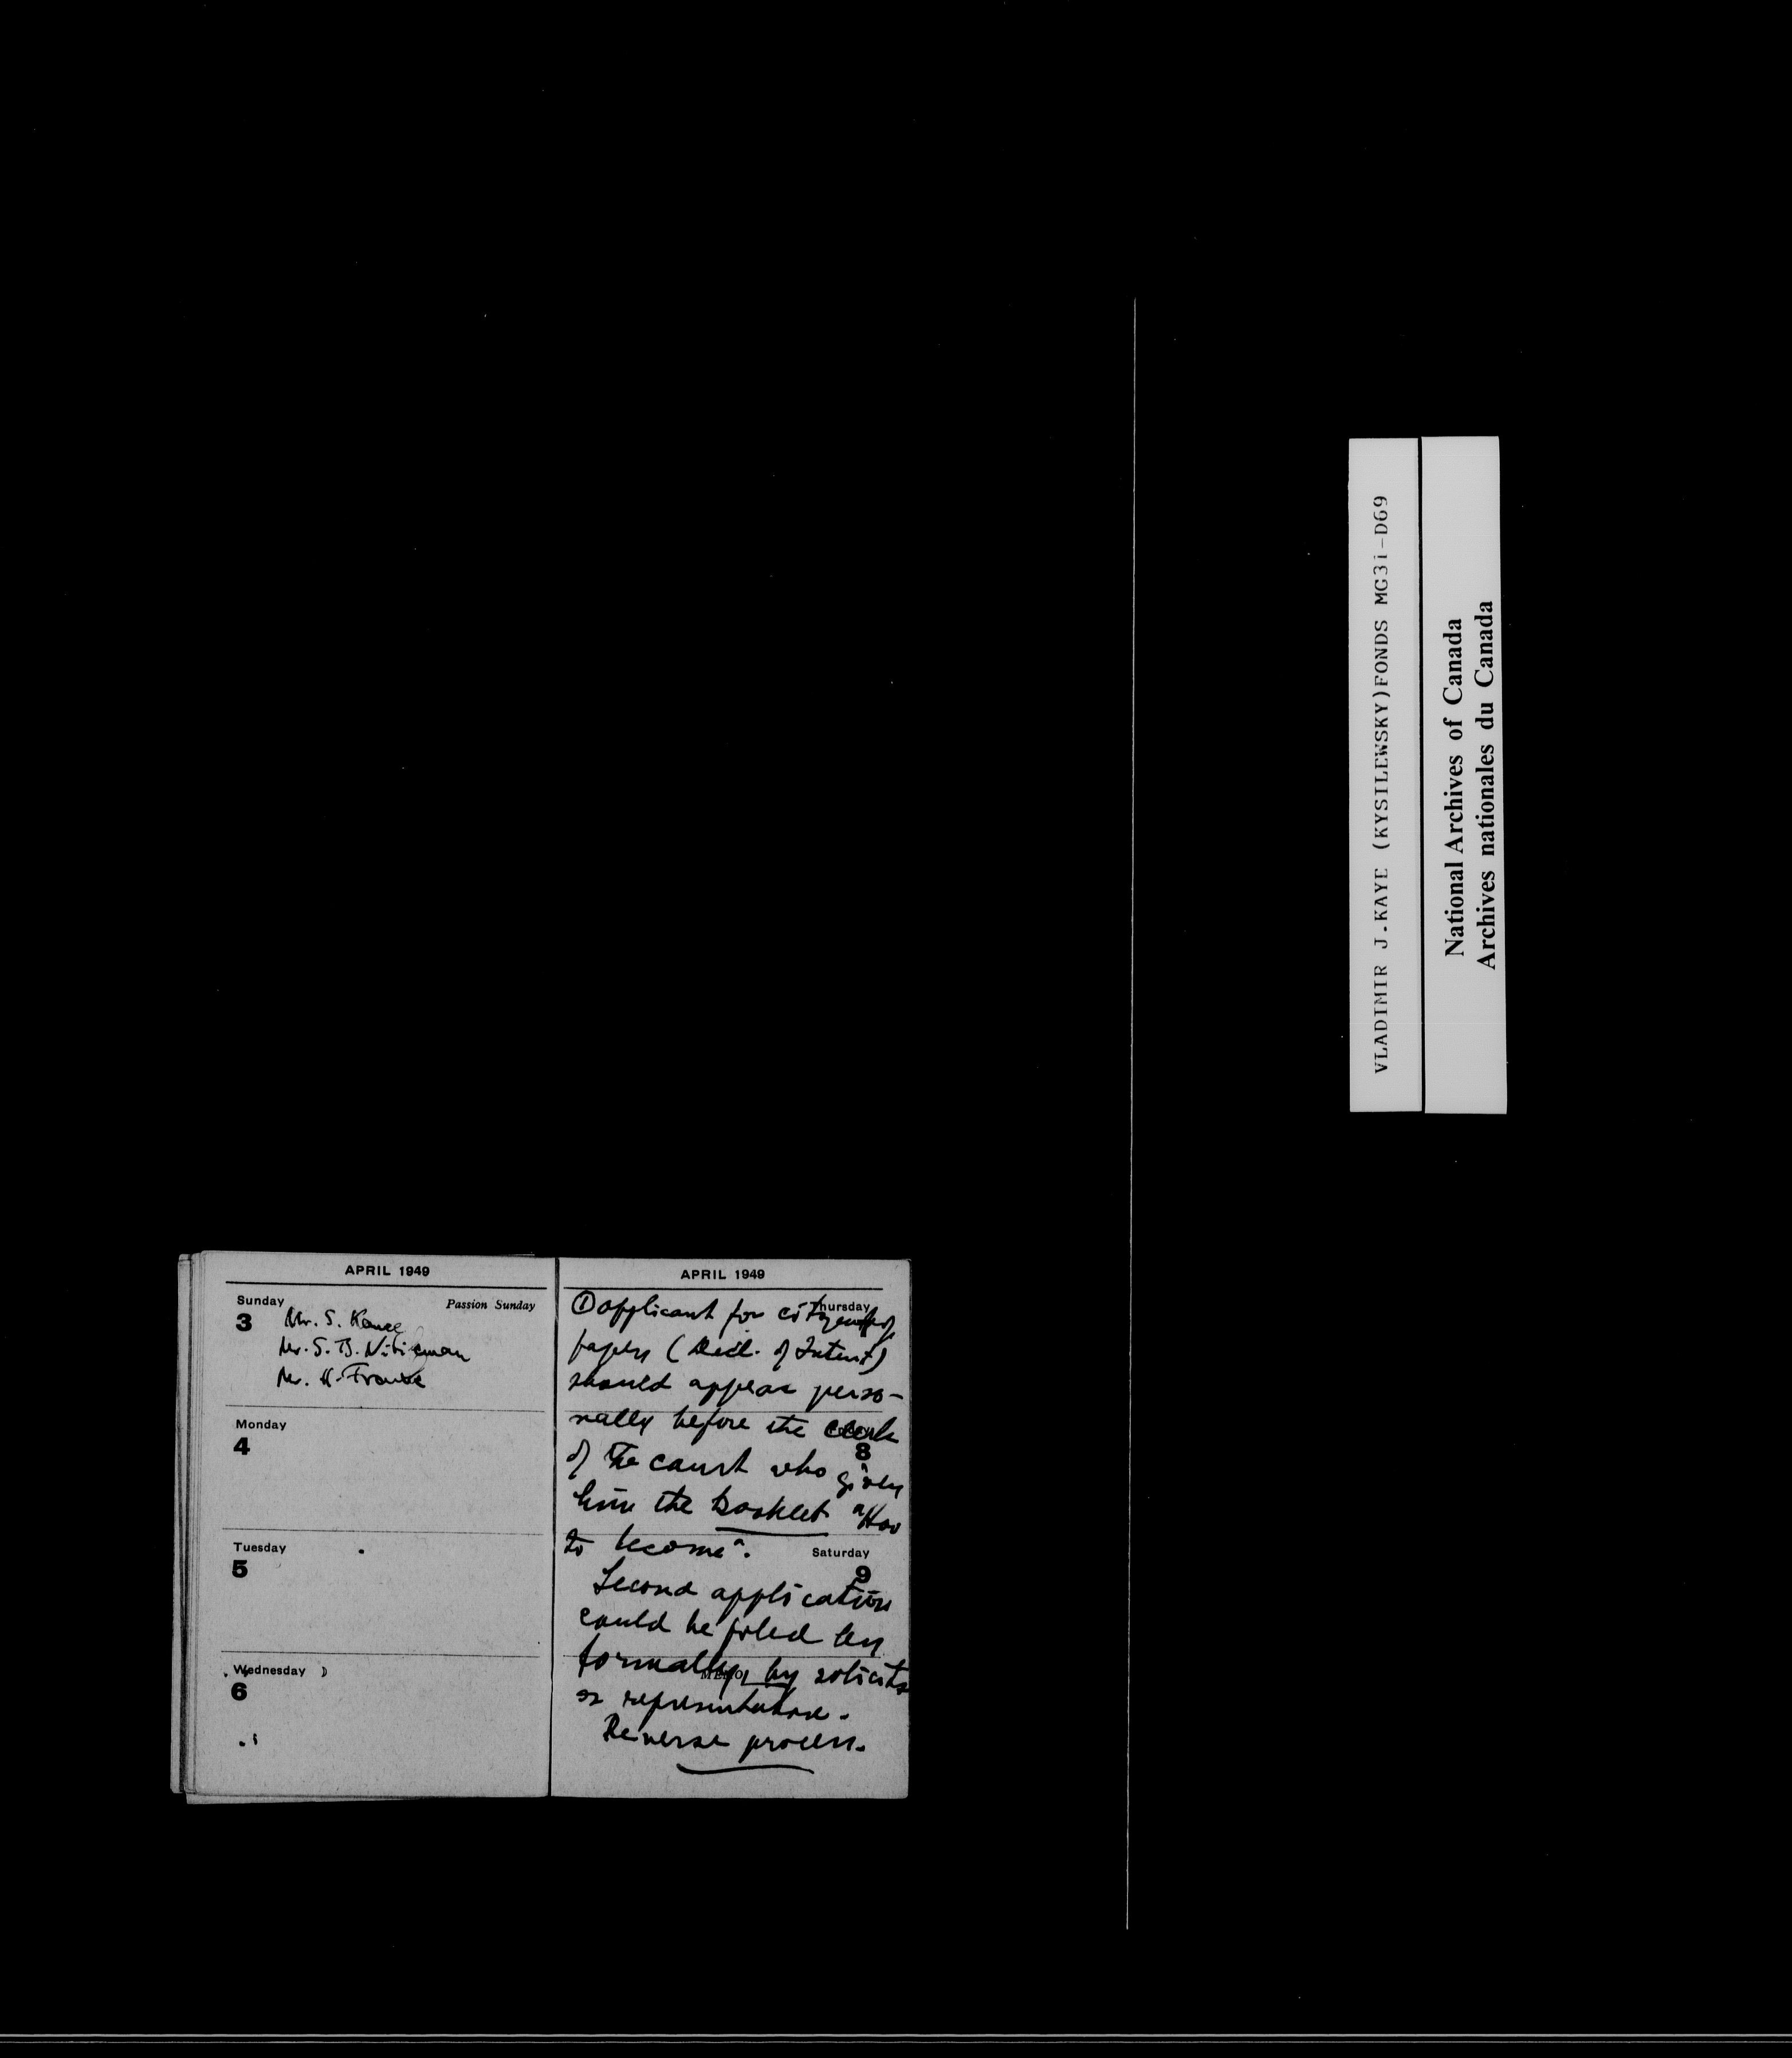 APRIL 1949
Sunday
Passion Sunday
3
Mr. S.
Mr. S. B.
Mr. H.
Monday
4
Tuesday
5
Wednesday
6
APRIL 1949
Thursday
① applicant for citizenship
papers (Decl. of Intent)
should appear perso-
nally before the clerk
8
of the court who gives
him the booklet "How
to become".
Saturday
9
Second application
could be filed
formally by solicitor
MEMO
or representative.
Reverse process.
VLADIMIR J.KAYE (KYSILEWSKY)FONDS MG3i-D69
National Archives of Canada
Archives nationales du Canada